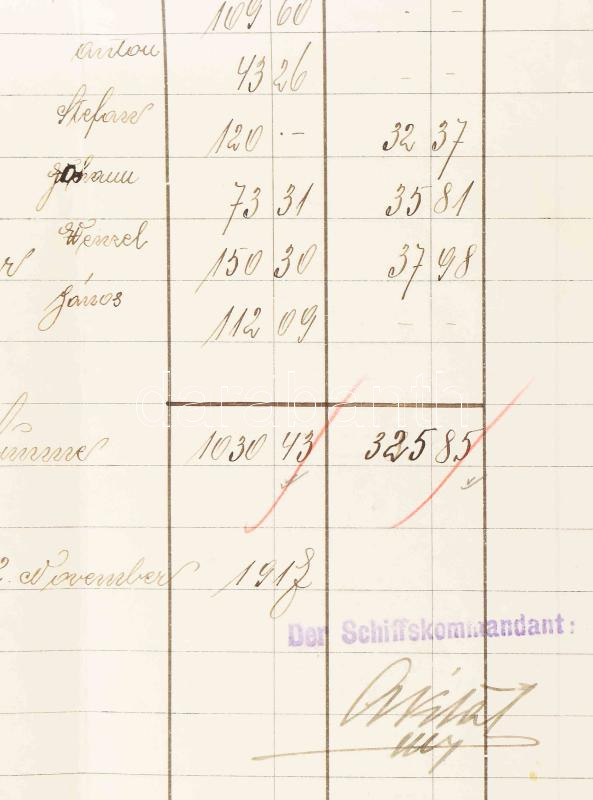 109 60 - -
Anton 43 26 - -
Stefan 120 .- 32 37
Johann 73 31 35 81
Wenzel 150 30 37 98
János 112 09 - -
darabanth
Summe 1030 43 325 85
2. November 1917
Der Schiffskommandant: